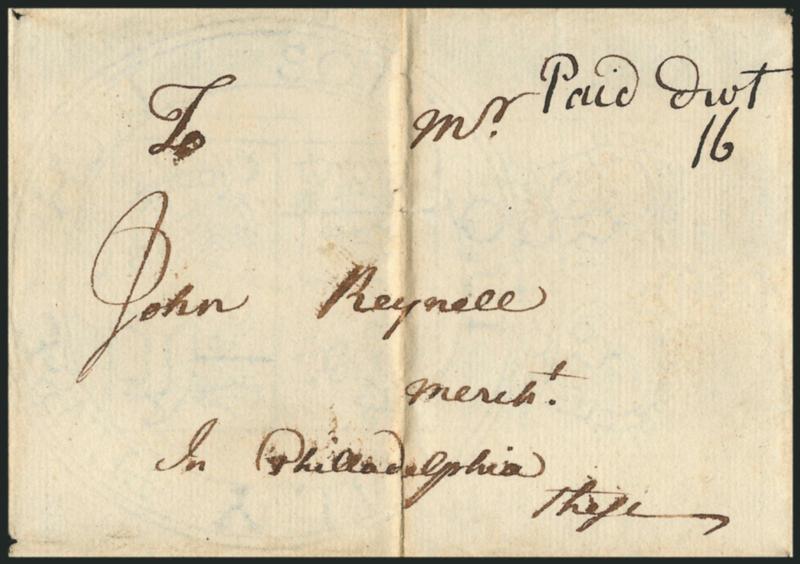 Paid dwt
16
To Mr
John Reynell
Mercht.
In Philladelphia
These